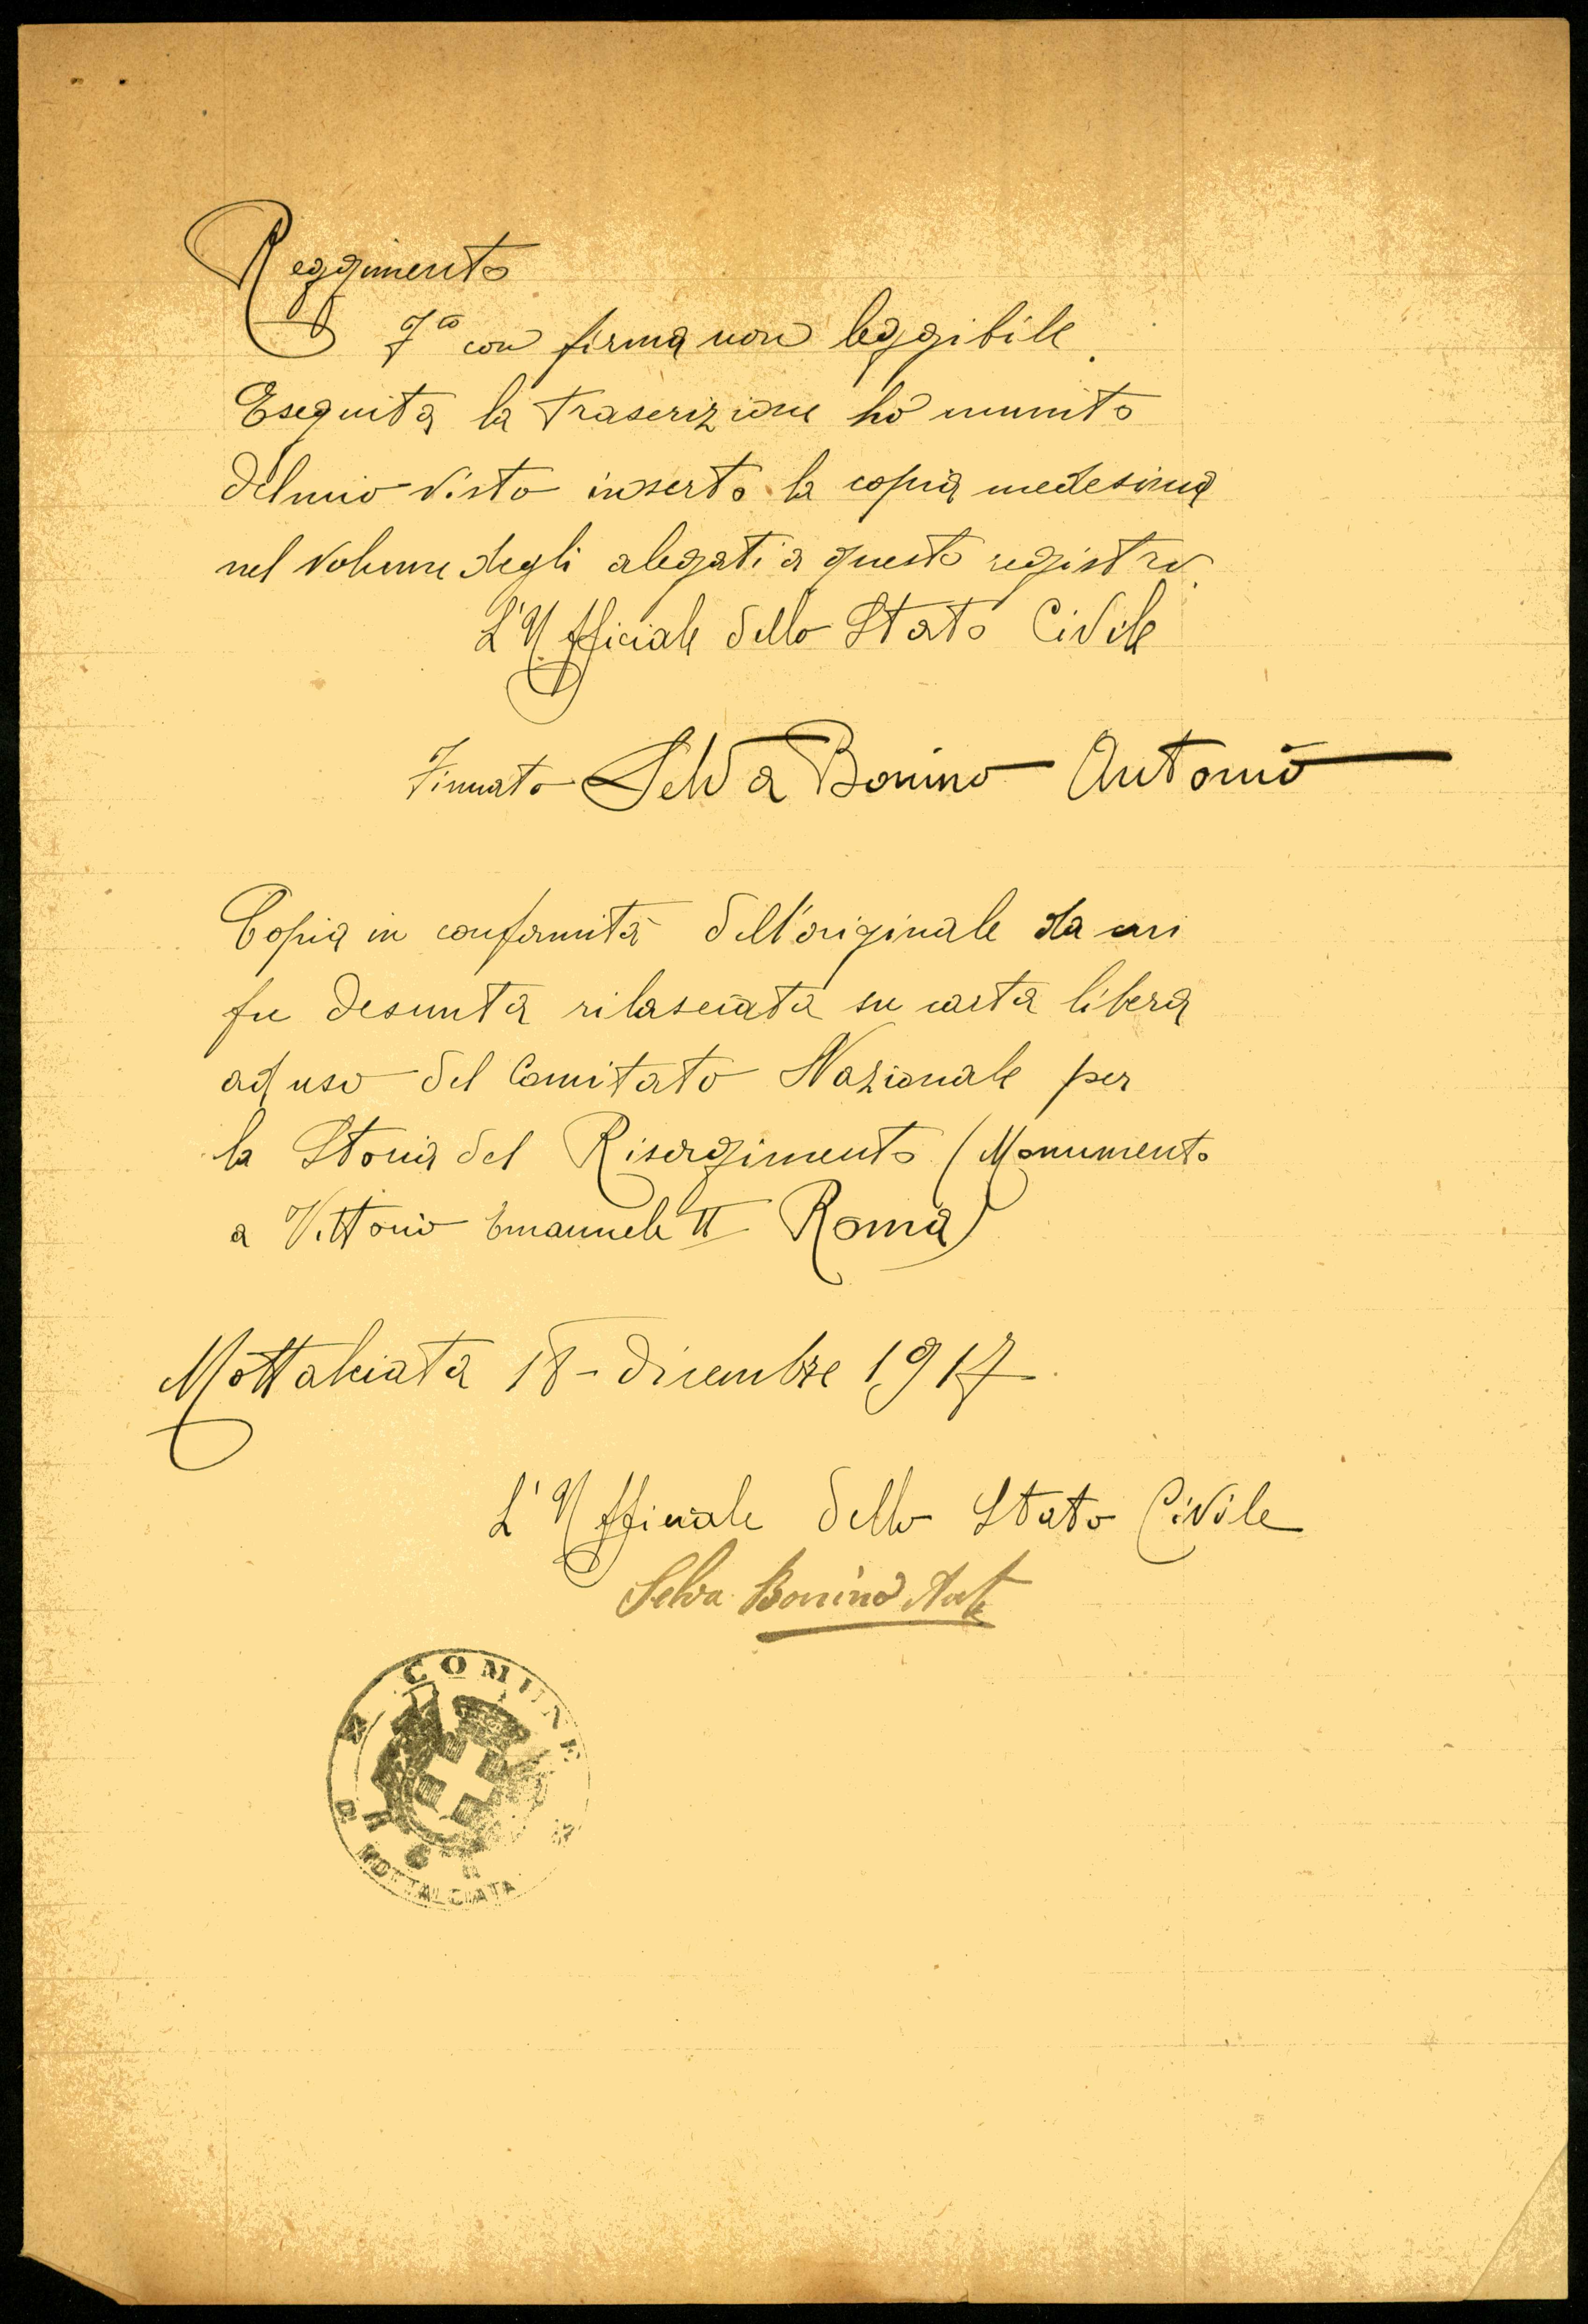 Reggimento
F.to con firma non leggibile.
Eseguita la trascrizione ho munito
del mio visto inserto la copia medesima
nel volume degli alegati a questo registro.
L'Ufficiale dello Stato Civile
Firmato Selva Bonino Antonio
Copia in conformità dell'originale da cui
fu desunta rilasciata su carta libera
ad uso del Comitato Nazionale per
la Storia del Risorgimento (Monumento
a Vittorio Emanuele II Roma)
Mottalciata 18 - dicembre 1917
L'Ufficiale dello Stato Civile
Selva Bonino Ant
COMUNE
MOTTALCIATA